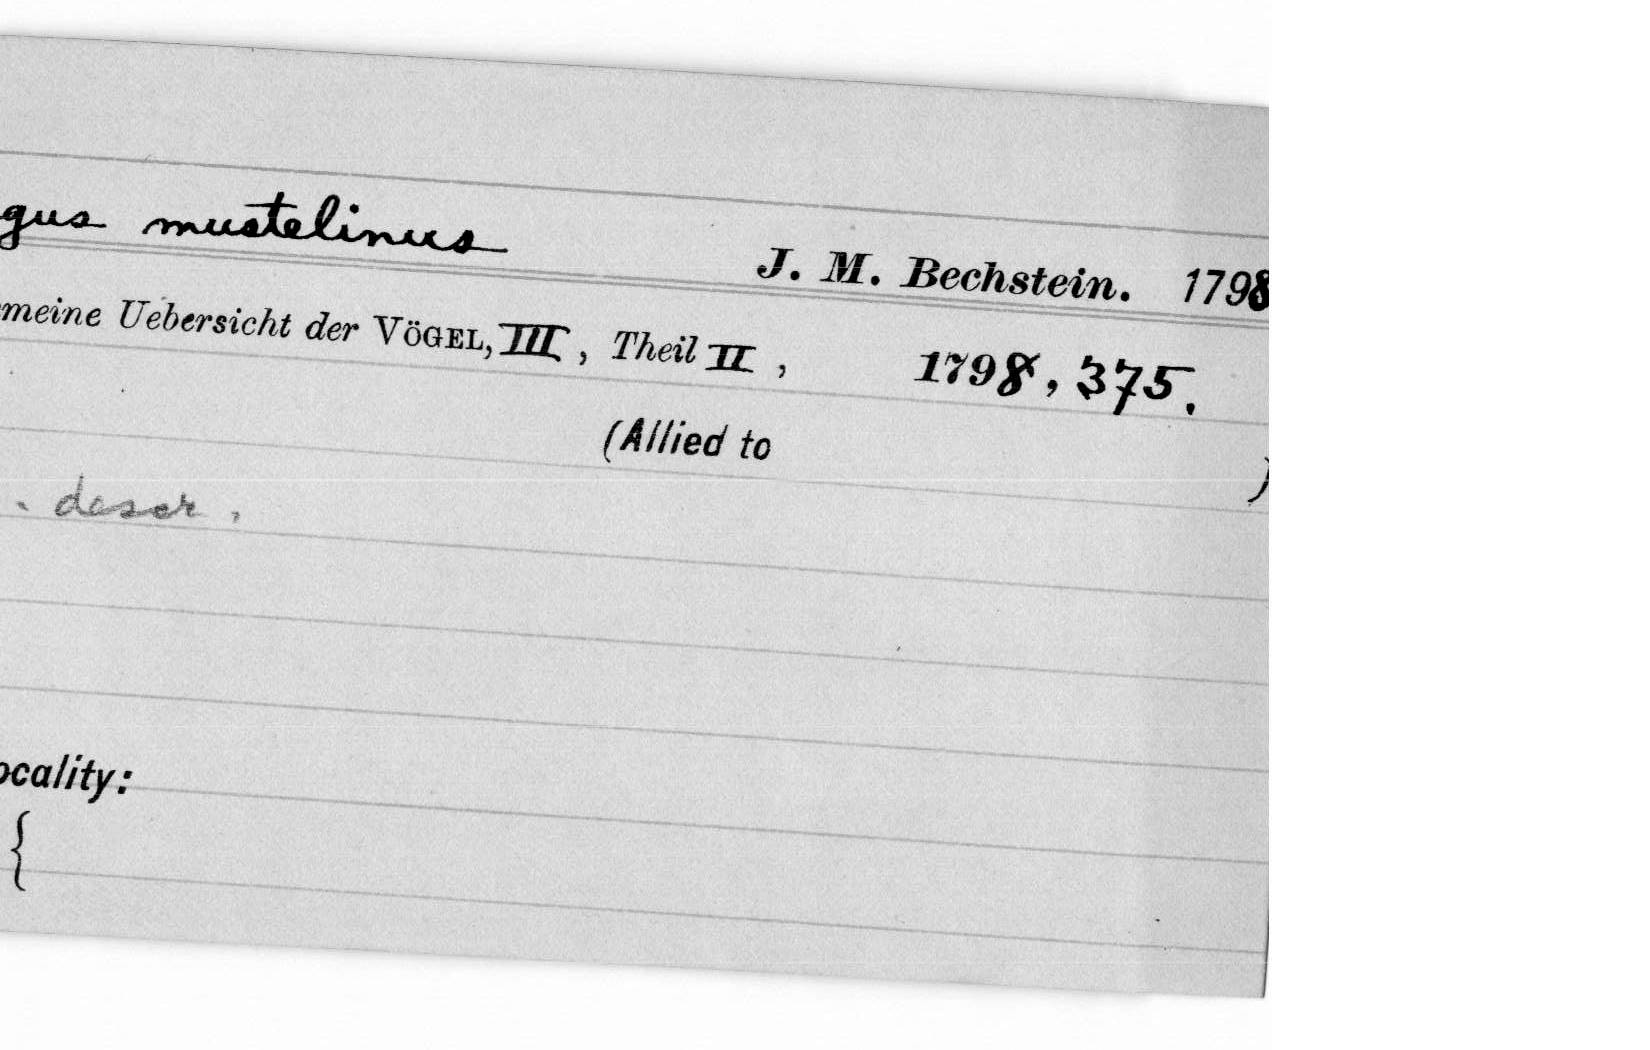 gus mustelinus
J. M. Bechstein. 1798
meine Uebersicht der VÖGEL, III, Theil II, 1798, 375.
(Allied to )
. descr.
ocality:
{